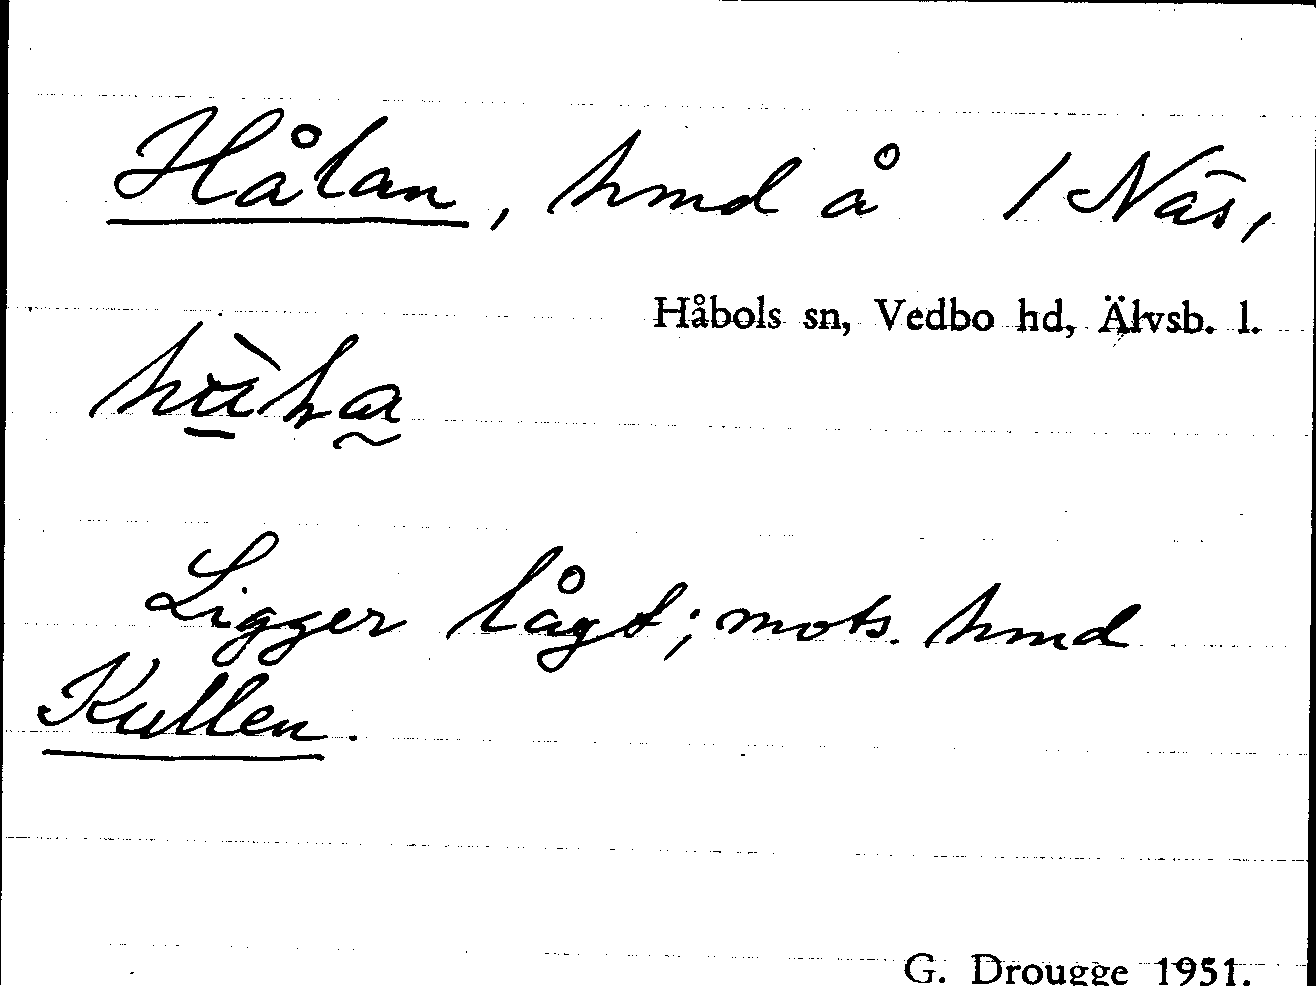 Hålan, hmd å 1 Näs,
Håbols sn, Vedbo hd, Älvsb. l.
Ligger lågt; mots. hmd
Kullen.
G. Drougge 1951.